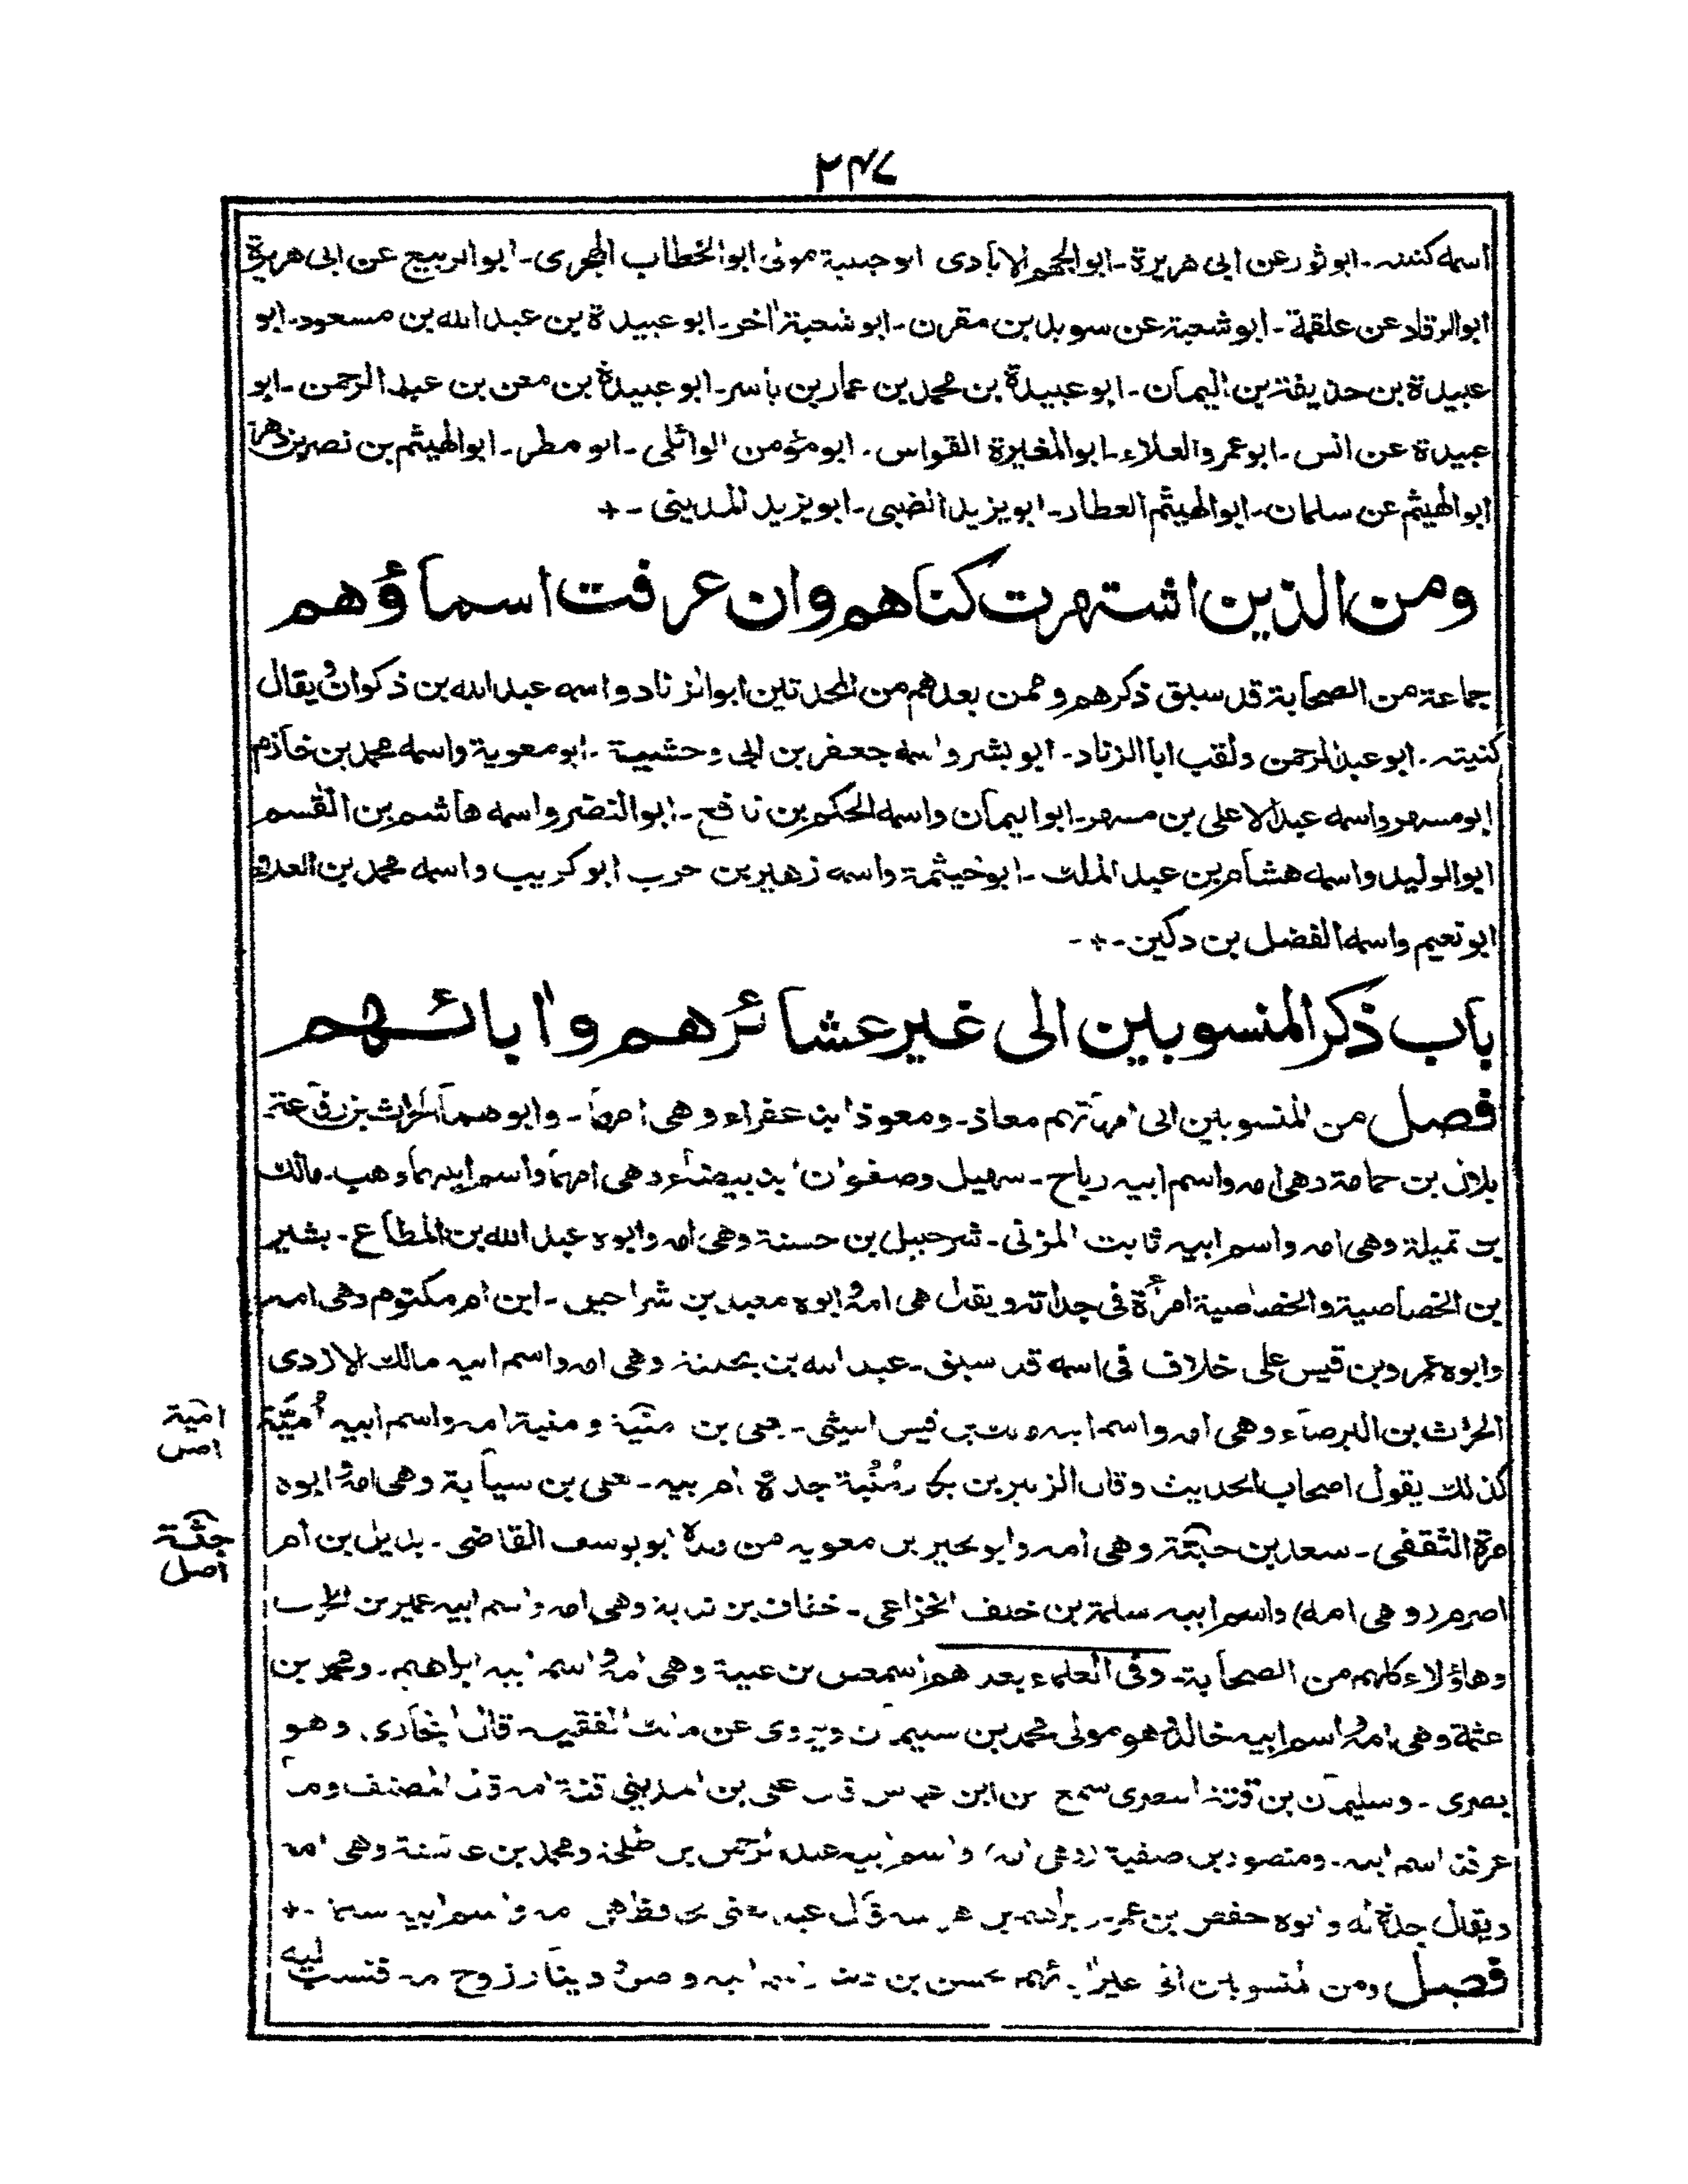 ٢٤٧
اسمه كنيته۔ ابو ثور عن ابى هريرة۔ ابو الجهم الايادى ابو حبيبة مولى ابو الخطاب الهجرى۔ ابو الربيع عن ابى هريرة
ابو الرقاد عن علقمة۔ ابو شعبة عن سويد بن مقرن۔ ابو شعبة اٰخر۔ ابو عبيدة بن عبد الله بن مسعود۔ ابو
عبيدة بن حذيفة بن اليمان۔ ابو عبيدة بن محمد بن عمار بن ياسر۔ ابو عبيدة بن معن بن عبد الرحمن۔ ابو
عبيدة عن انس۔ ابو عمرو العلاء۔ ابو المغيرة القواس۔ ابو مؤمن الوائلى۔ ابو مطر۔ ابو الهيثم بن نصر بن دهر
ابو الهيثم عن سلمان۔ ابو الهيثم العطار۔ ابو يزيد الضبى۔ ابو يزيد المدينى۔ +
ومن الذين اشتهرت كناهم وان عرفت اسماؤهم
جماعة من الصحابة قد سبق ذكرهم وممن بعدهم من المحدثين ابو الزناد واسمه عبد الله بن ذكوان ويقال
كنيته۔ ابو عبد الرحمن ولقب ابا الزناد۔ ابو بشر واسمه جعفر بن ابى وحشية۔ ابو معوية واسمه محمد بن خازم
ابو مسهر واسمه عبد الاعلى بن مسهر۔ ابو اليمان واسمه الحكم بن نافع۔ ابو النضر واسمه هاشم بن القسم
ابو الوليد واسمه هشام بن عبد الملك۔ ابو خيثمة واسمه زهير بن حرب ابو كريب واسمه محمد بن العلاء
ابو نعيم واسمه الفضل بن دكين۔ + ۔
باب ذكر المنسوبين الى غير عشائرهم واٰبائهم
فصل من المنسوبين الى امهاتهم معاذ۔ ومعوذ ابن عفراء وهى امهما۔ وابوهما الحٰرث بن رفاعة
بلال بن حمامة وهى امه واسم ابيه رباح۔ سهيل وصفوان ابن بيضاء وهى امهما واسم ابيهما وهب۔ مالك
بن تميلة وهى امه واسم ابيه ثابت المزنى۔ شرحبيل بن حسنة وهى امه وابوه عبد الله بن المطاع۔ بشير
بن الخصاصية والخصاصية امرأة فى جداته ويقال هى امه وابوه معبد بن شراحيل۔ ابن ام مكتوم وهى امه
وابوه عمرو بن قيس على خلاف فى اسمه قد سبق۔ عبد الله بن بحينة وهى امه واسم ابيه مالك الازدى
الحٰرث بن البرصاء وهى امه واسم ابيه مالك بن قيس الليثى۔ يعلى بن منية ومنية امه واسم ابيه اُمَيَّة
امية
اصل
كذلك يقول اصحاب الحديث وقال الزبير بن بكار مُنْيَة جدة ام ابيه۔ يعلى بن سيابة وهى امه وابوه
مرة الثقفى۔ سعد بن حبتة وهى امه وابو بحير بن معوية من ولده ابو يوسف القاضى۔ بديل بن ام
جثة
اصل
اصرم (وهى امه) واسم ابيه سلمة بن خلف الخزاعى۔ خفاف بن ندبة وهى امه واسم ابيه عمير بن الحرث
وهاؤلاء كلهم من الصحابة۔ وفى العلماء بعدهم اسمعيل بن علية وهى امه واسم ابيه ابراهيم۔ ومحمد بن
عثمة وهى امه واسم ابيه خالد وهو مولى محمد بن سليمٰن ويروى عن مالك الفقيه قال البخارى وهو
بصرى۔ وسليمٰن بن قتة البصرى سمع من ابن عباس قال على بن المدينى قتة امه قال المصنف وما
عرفت اسم ابيه۔ ومنصور بن صفية (وهى امه) واسم ابيه عبد الرحمن بن طلحة ومحمد بن عائشة وهى امه
ويقال جدة له وابوه حفص بن عمر۔ ابراهيم بن هراسة قال عبد الغنى الحافظ هى امه واسم ابيه سلمة۔ +
فصل ومن المنسوبين الى غير اٰبائهم حسن بن دينار دينار زوج امه فنسب اليه